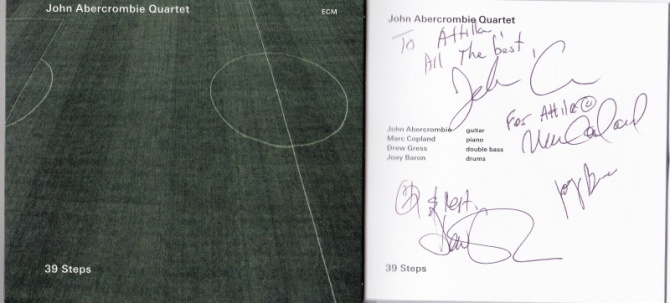 John Abercrombie Quartet
ECM
39 Steps
John Abercrombie Quartet
To Attila,
All The best,
John
For Attila
John Abercrombie guitar
Marc Copland piano
Drew Gress double bass
Joey Baron drums
& Best,
39 Steps